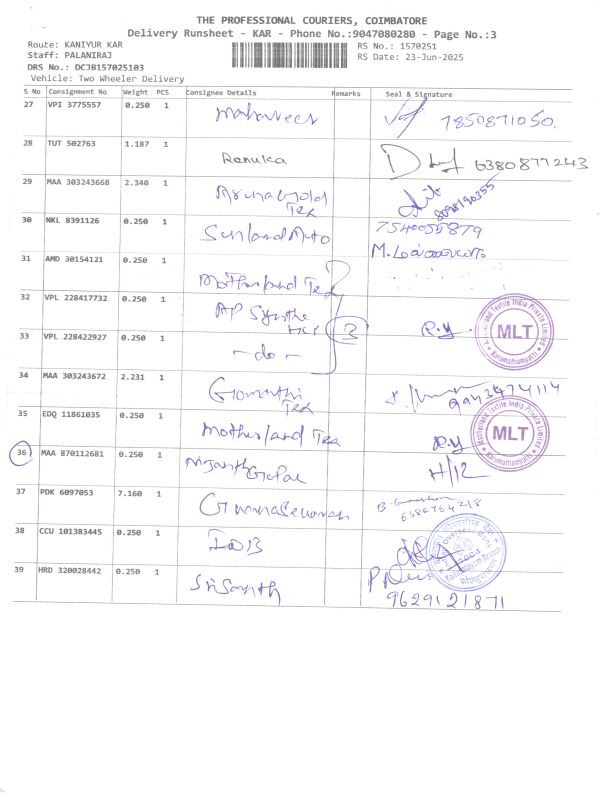 THE PROFESSIONAL COURIERS, COIMBATORE
Delivery Runsheet - KAR - Phone No.:9047080280 - Page No.:3
Route: KANIYUR KAR RS No.: 1570251
Staff: PALANIRAJ RS Date: 23-Jun-2025
DRS No.: DCJB157025103
Vehicle: Two Wheeler Delivery
S No Consignment No Weight PCS Consignee Details Remarks Seal & Signature
27 VPI 3775557 0.250 1 Mahaveer 7850871050.
28 TUT 502763 1.187 1 Renuka 6380877243
29 MAA 303243668 2.340 1 Aruna Gold
Tex 8098190355
30 NKL 8391126 0.250 1 Sunland Auto 7540055879
31 AMD 30154121 0.250 1 Motherland Tex
32 VPL 228417732 0.250 1 AP Synthe 3 R.y
Motherland Textile India Private Limited
MLT
Karumathampatti
33 VPL 228422927 0.250 1 - do -
34 MAA 303243672 2.231 1 Gomathi
Tex 9943974114
35 EDQ 11861035 0.250 1 Motherland Tex R.y
Motherland Textile India Private Limited
MLT
Karumathampatti
36 MAA 870112681 0.250 1 Nijanth Gopal H/12
37 PDK 6097053 7.160 1 Gunasekaran
6380764218
38 CCU 101383445 0.250 1 IOB
39 HRD 320028442 0.250 1 Srisanth
9629121871